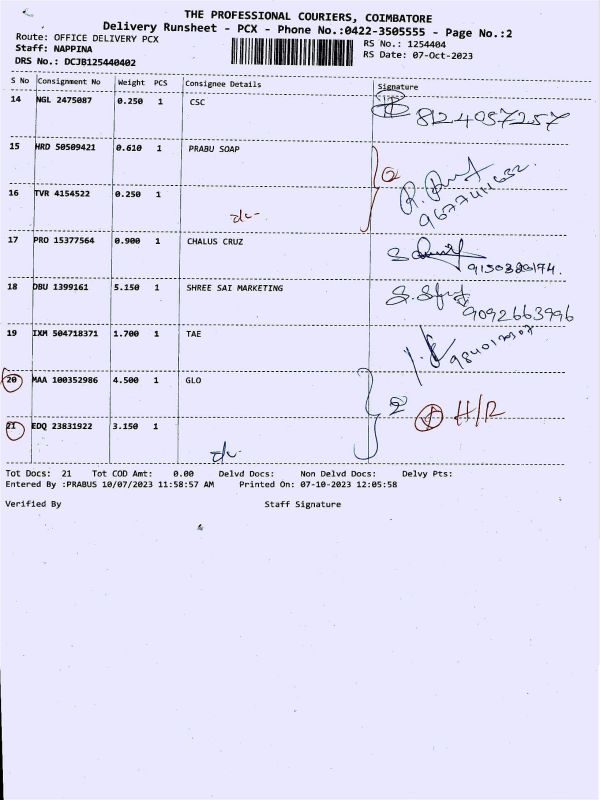 THE PROFESSIONAL COURIERS, COIMBATORE
Delivery Runsheet - PCX - Phone No.:0422-3505555 - Page No.:2
Route: OFFICE DELIVERY PCX
RS No.: 1254404
Staff: NAPPINA
RS Date: 07-Oct-2023
DRS No.: DCJB125440402
S No Consignment No Weight PCS Consignee Details Signature
14 NGL 2475087 0.250 1 CSC 8124057257
15 HRD 50509421 0.610 1 PRABU SOAP 2
16 TVR 4154522 0.250 1
17 PRO 15377564 0.900 1 CHALUS CRUZ
9150320194.
18 DBU 1399161 5.150 1 SHREE SAI MARKETING
9092663996
19 IXM 504718371 1.700 1 TAE
20 MAA 100352986 4.500 1 GLO
2 H/R
21 EDQ 23831922 3.150 1
Tot Docs: 21 Tot COD Amt: 0.00 Delvd Docs: Non Delvd Docs: Delvy Pts:
Entered By :PRABUS 10/07/2023 11:58:57 AM Printed On: 07-10-2023 12:05:58
Verified By Staff Signature